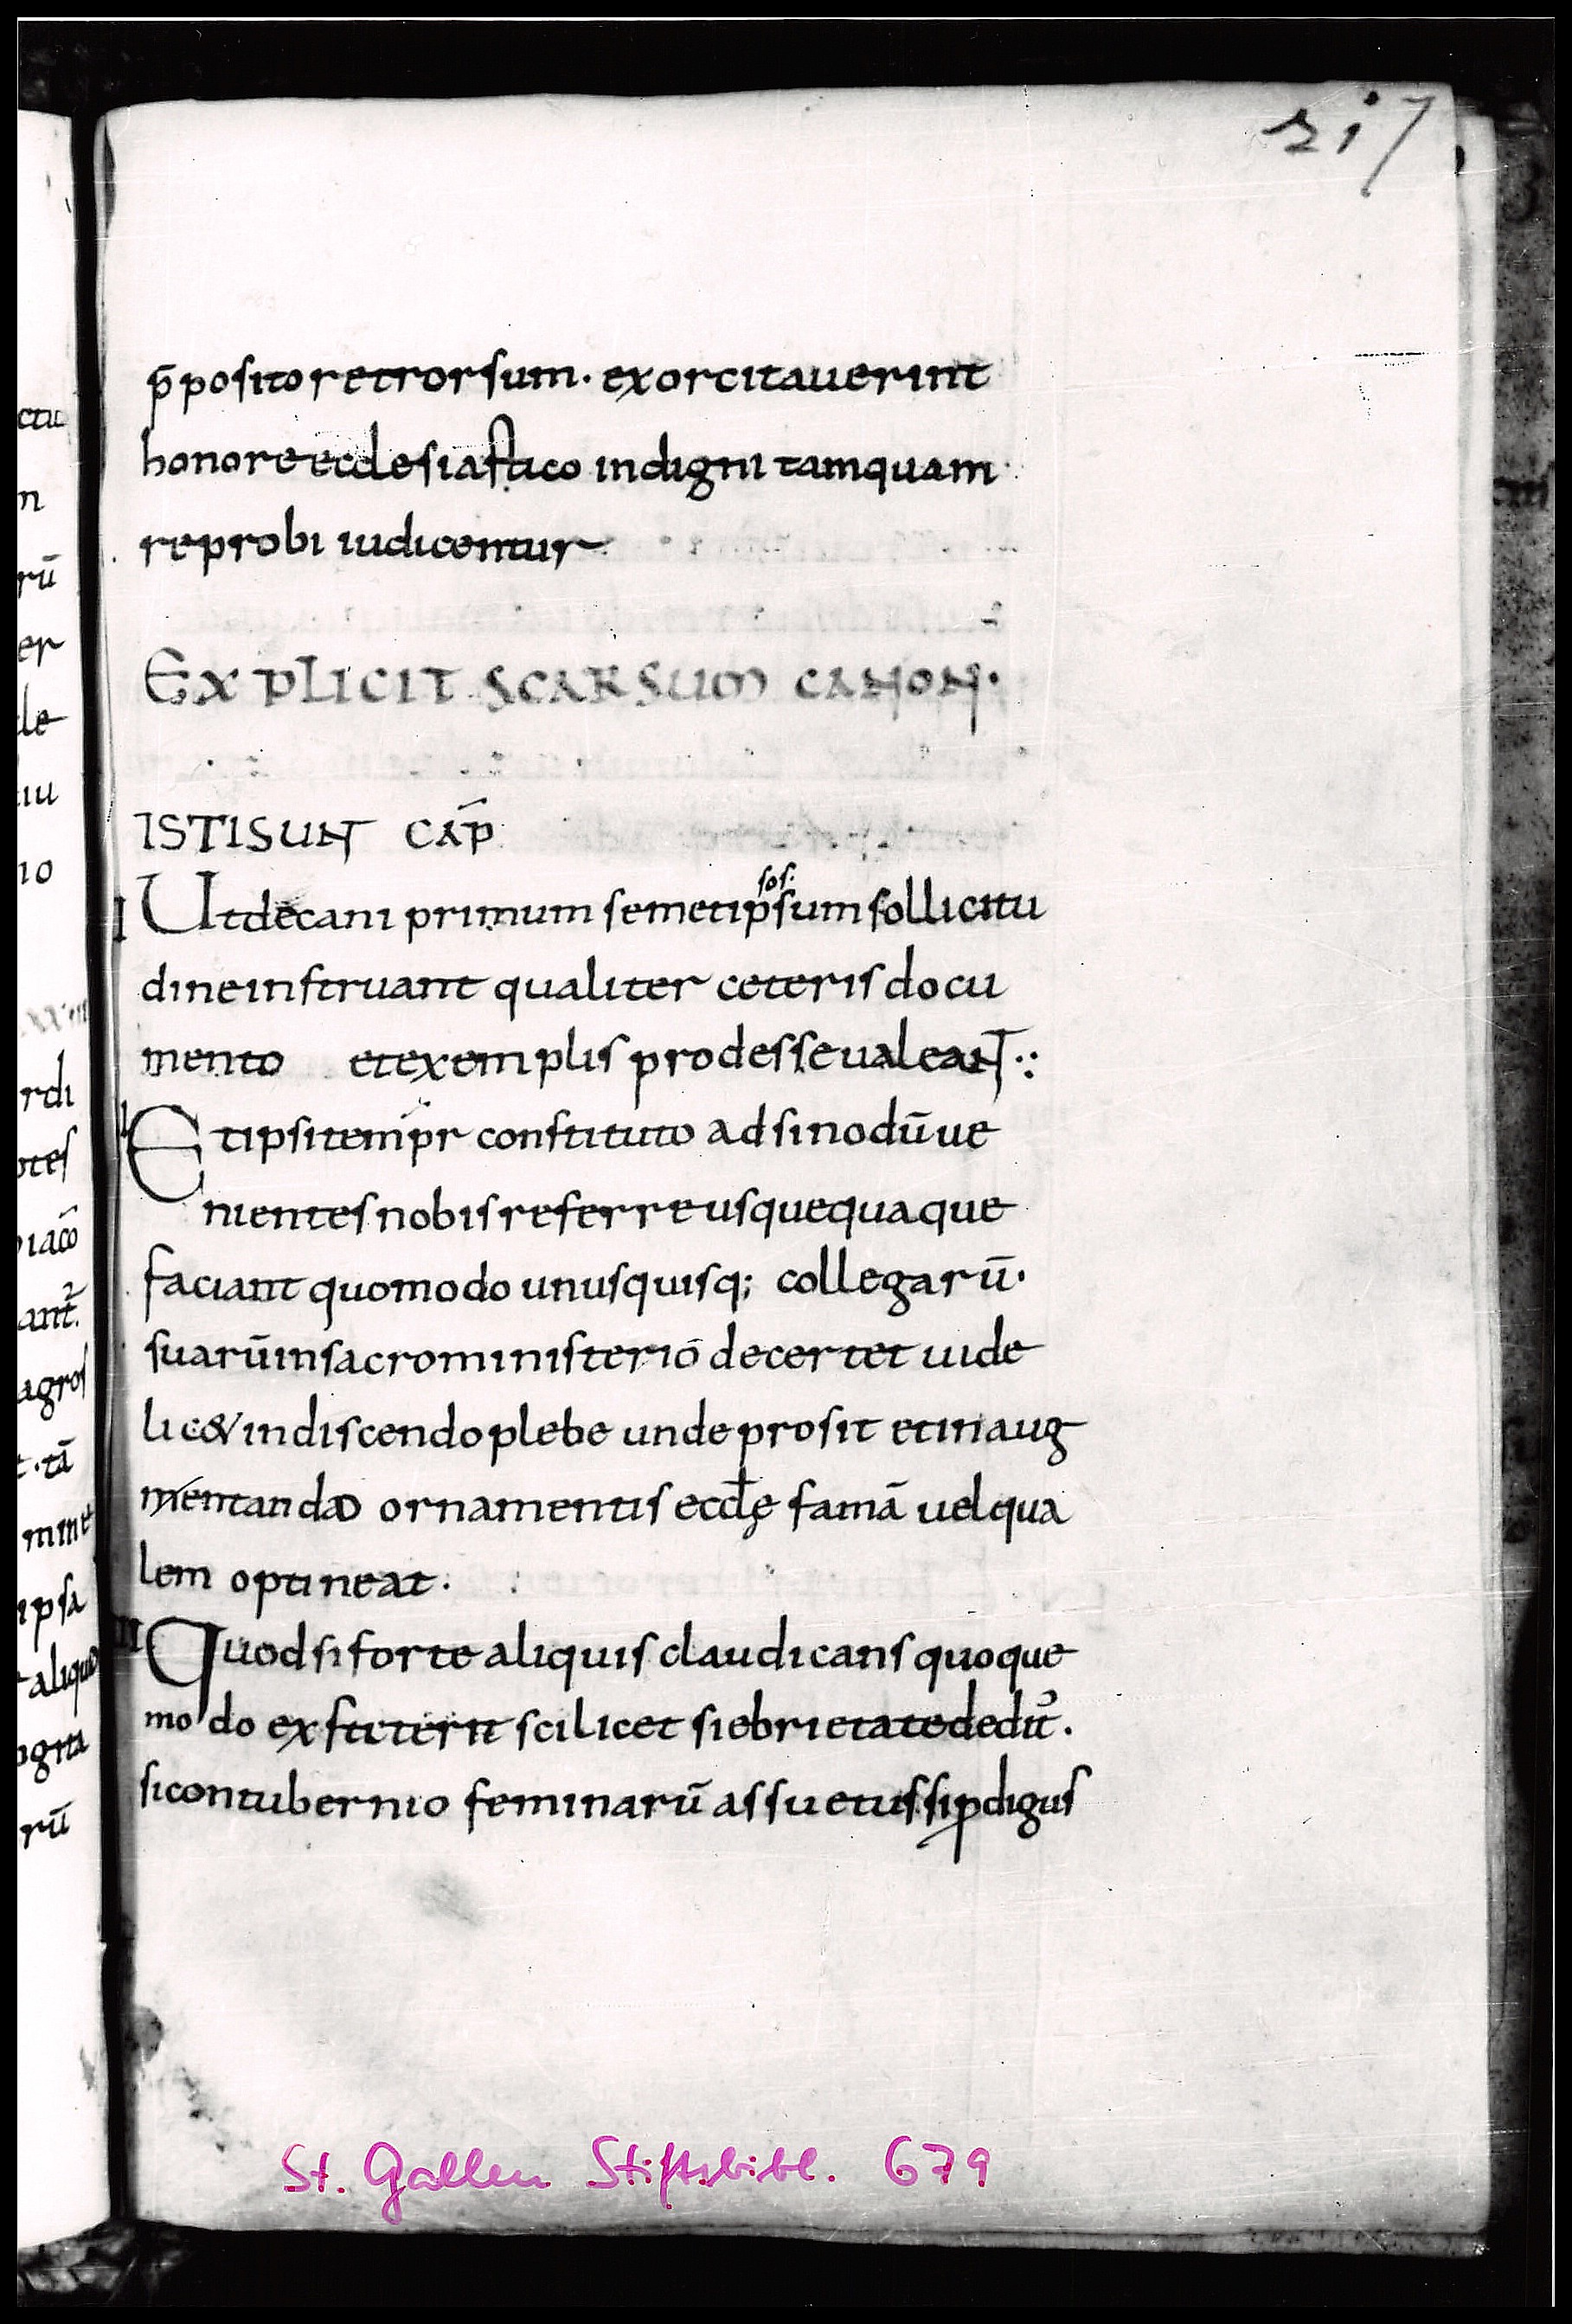 217
p̄posito retrorsum · exorcitauerint
honore ecclesiastico indigni tamquam
reprobi iudicentur
EXPLICIT SCARSUM CANON·
ISTI SUNT CAP̄
I Ut decani primum semetipsum sos· sollicitu
dine instruant qualiter ceteris docu
mento et exemplis prodesse ualeant ·:
Et ipsi tempr constituto ad sinodū ue
nientes nobis referre usquequaque
faciant quomodo unusquisq; collegarū·
suarū in sacro ministerio decertet uide
lic& in discendo plebe unde prosit et in aug
mentando ornamentis eccłę famā uel qua
lem optineat·
III Quod si forte aliquis claudicans quoque
modo exstiterit scilicet si ebrietate dedit᷒·
si contubernio feminarū assuetus si ꝓdigus
ctu
n
rū
er
le
iu
io
rdi
otes
iacō
agros
t·tā
ipsa
aliquo
ogna
rū
St. Gallen Stiftsbibl. 679